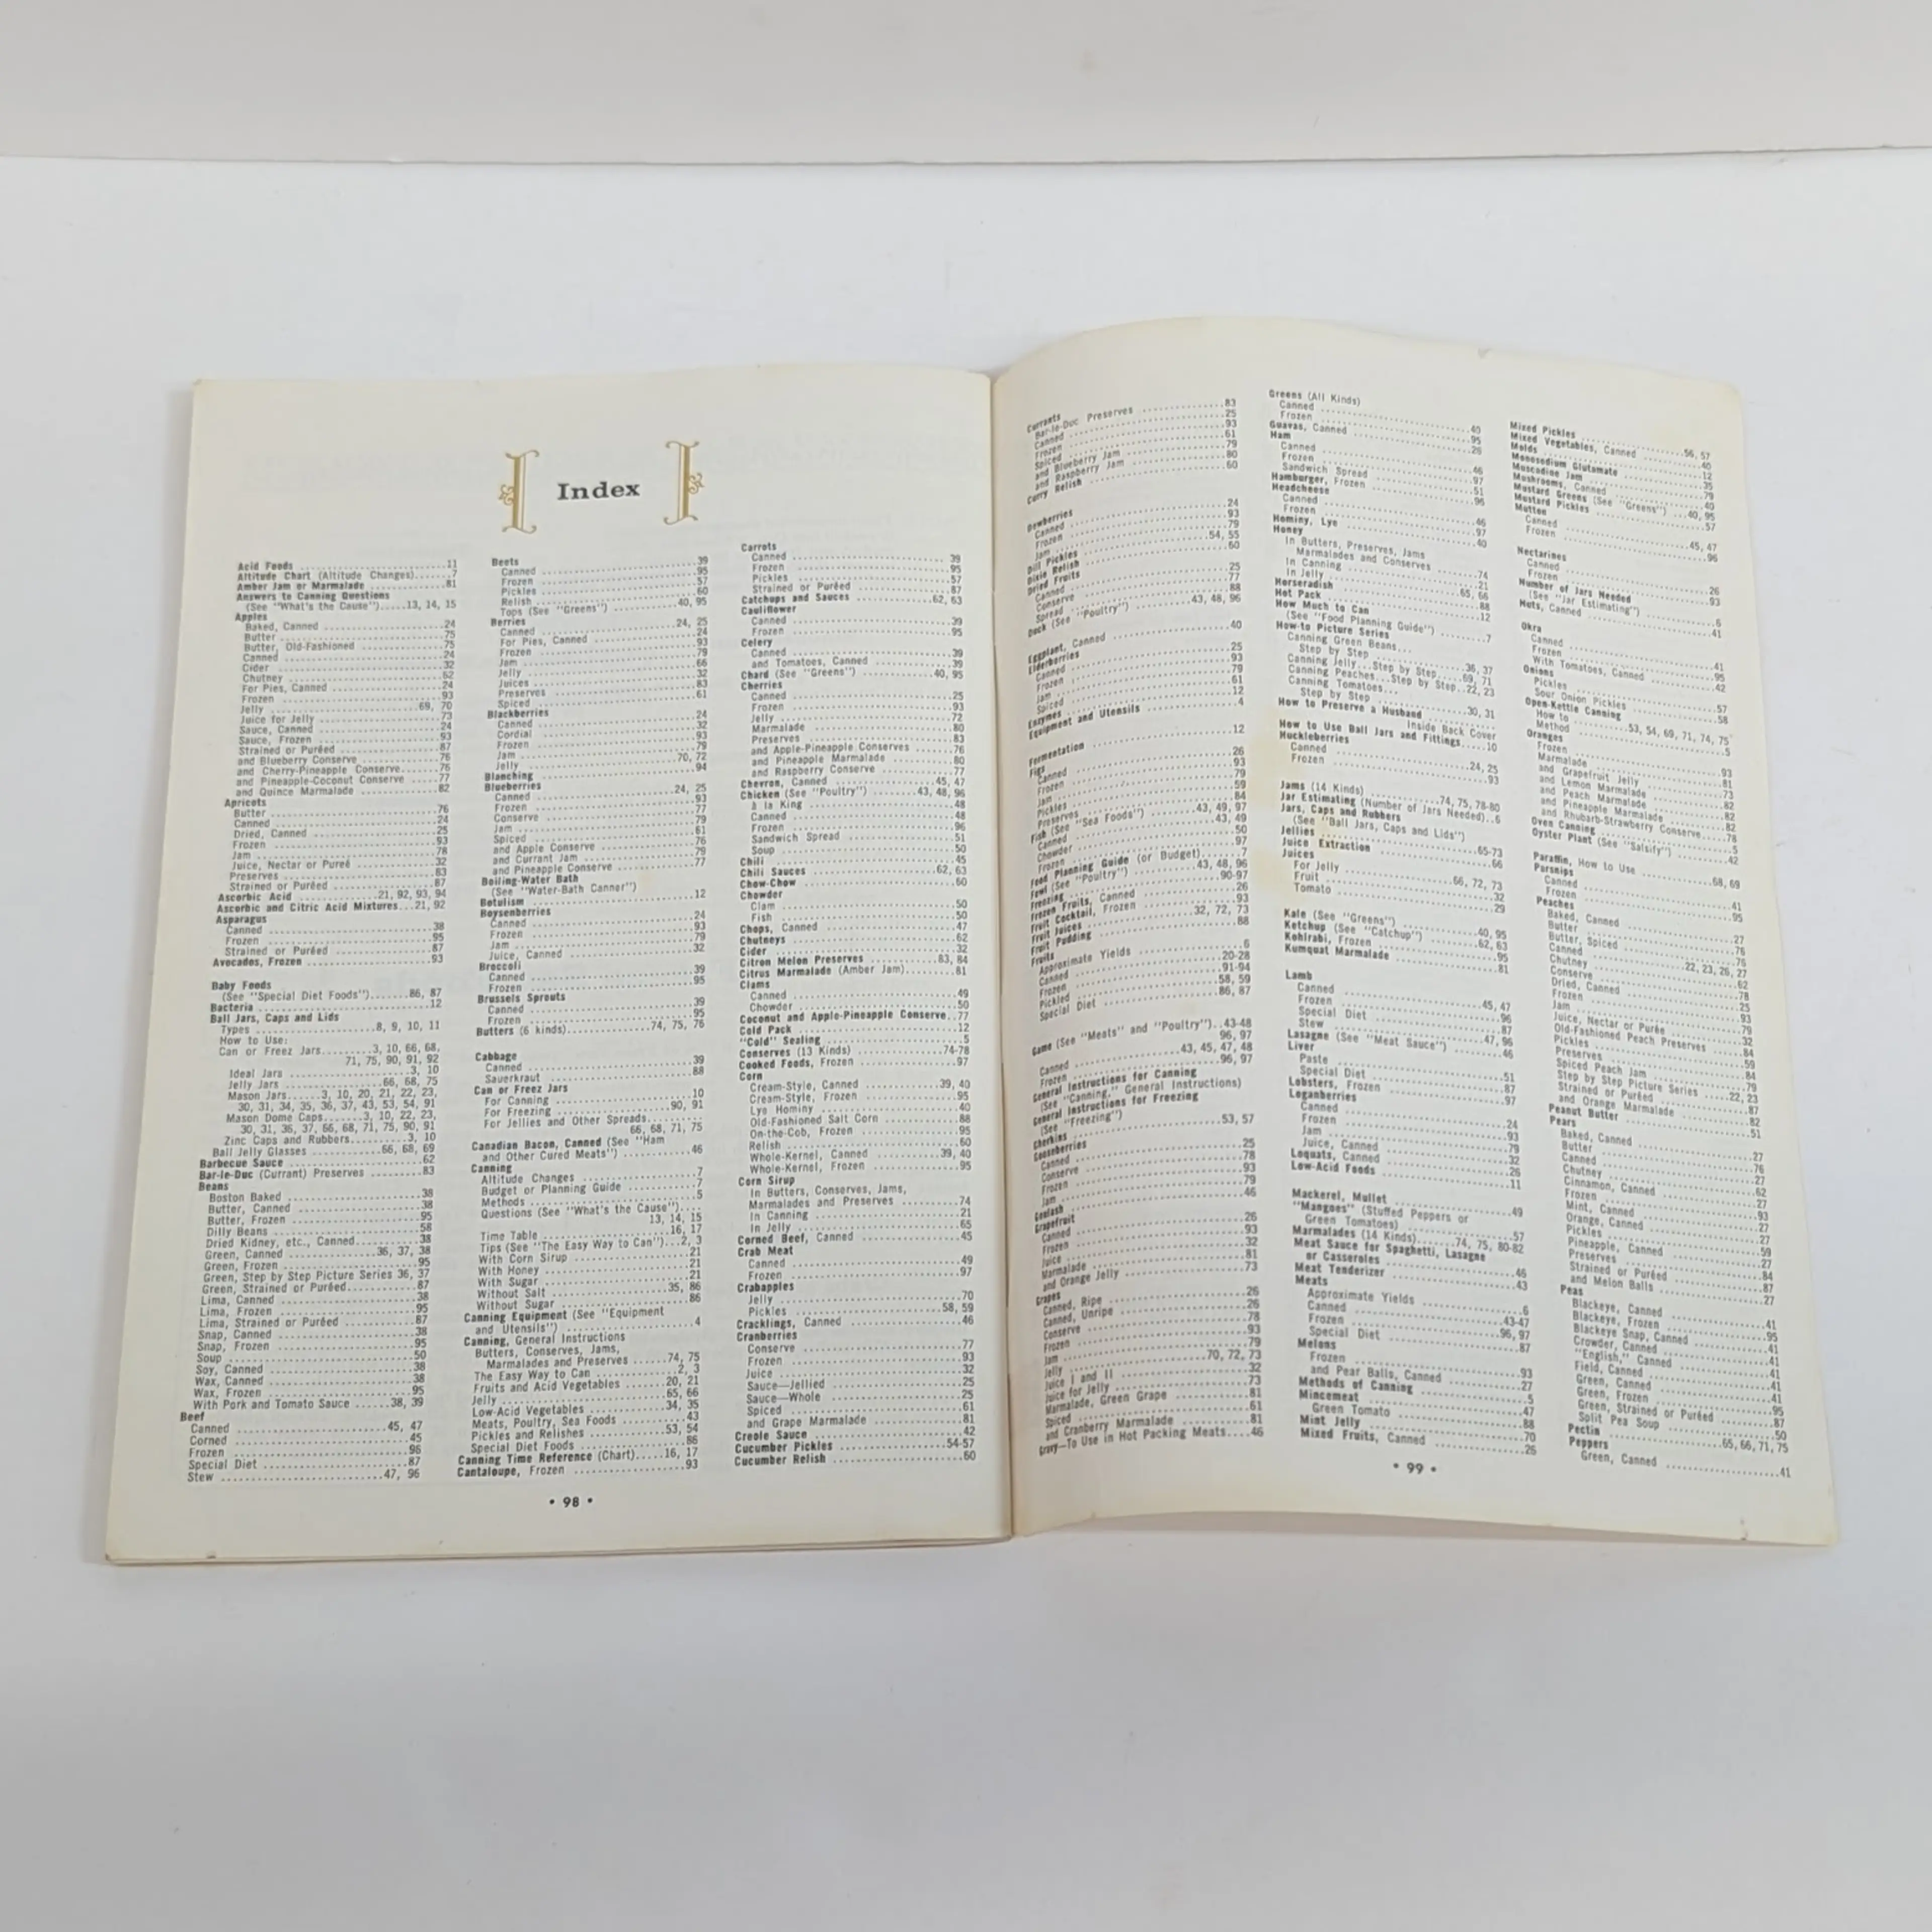 Index
Acid Foods ..... 11
Altitude Chart (Altitude Changes) ..... 7
Amber Jam or Marmalade ..... 81
Answers to Canning Questions
(See "What's the Cause") ..... 13, 14, 15
Apples
Baked, Canned ..... 24
Butter ..... 75
Butter, Old-Fashioned ..... 75
Canned ..... 24
Cider ..... 32
Chutney ..... 62
For Pies, Canned ..... 24
Frozen ..... 93
Jelly ..... 69, 70
Juice for Jelly ..... 73
Sauce, Canned ..... 24
Sauce, Frozen ..... 93
Strained or Puréed ..... 87
and Blueberry Conserve ..... 76
and Cherry-Pineapple Conserve ..... 76
and Pineapple-Coconut Conserve ..... 77
and Quince Marmalade ..... 82
Apricots
Butter ..... 76
Canned ..... 24
Dried, Canned ..... 25
Frozen ..... 93
Jam ..... 78
Juice, Nectar or Pureé ..... 32
Preserves ..... 83
Strained or Puréed ..... 87
Ascorbic Acid ..... 21, 92, 93, 94
Ascorbic and Citric Acid Mixtures ... 21, 92
Asparagus
Canned ..... 38
Frozen ..... 95
Strained or Puréed ..... 87
Avocados, Frozen ..... 93
Baby Foods
(See "Special Diet Foods") ..... 86, 87
Bacteria ..... 12
Ball Jars, Caps and Lids
Types ..... 8, 9, 10, 11
How to Use:
Can or Freez Jars ..... 3, 10, 66, 68,
71, 75, 90, 91, 92
Ideal Jars ..... 3, 10
Jelly Jars ..... 66, 68, 75
Mason Jars ..... 3, 10, 20, 21, 22, 23,
30, 31, 34, 35, 36, 37, 43, 53, 54, 91
Mason Dome Caps ..... 3, 10, 22, 23,
30, 31, 36, 37, 66, 68, 71, 75, 90, 91
Zinc Caps and Rubbers ..... 3, 10
Ball Jelly Glasses ..... 66, 68, 69
Barbecue Sauce ..... 62
Bar-le-Duc (Currant) Preserves ..... 83
Beans
Boston Baked ..... 38
Butter, Canned ..... 38
Butter, Frozen ..... 95
Dilly Beans ..... 58
Dried Kidney, etc., Canned ..... 38
Green, Canned ..... 36, 37, 38
Green, Frozen ..... 95
Green, Step by Step Picture Series 36, 37
Green, Strained or Puréed ..... 87
Lima, Canned ..... 38
Lima, Frozen ..... 95
Lima, Strained or Puréed ..... 87
Snap, Canned ..... 38
Snap, Frozen ..... 95
Soup ..... 50
Soy, Canned ..... 38
Wax, Canned ..... 38
Wax, Frozen ..... 95
With Pork and Tomato Sauce ..... 38, 39
Beef
Canned ..... 45, 47
Corned ..... 45
Frozen ..... 96
Special Diet ..... 87
Stew ..... 47, 96
Beets ..... 39
Canned ..... 95
Frozen ..... 57
Pickles ..... 60
Relish ..... 40, 95
Tops (See "Greens")
Berries ..... 24, 25
Canned ..... 24
For Pies, Canned ..... 93
Frozen ..... 79
Jam ..... 66
Jelly ..... 32
Juices ..... 83
Preserves ..... 61
Spiced
Blackberries ..... 24
Canned ..... 32
Cordial ..... 93
Frozen ..... 79
Jam ..... 70, 72
Jelly ..... 94
Blanching
Blueberries ..... 24, 25
Canned ..... 93
Frozen ..... 77
Conserve ..... 79
Jam ..... 61
Spiced ..... 76
and Apple Conserve ..... 79
and Currant Jam ..... 77
and Pineapple Conserve
Boiling-Water Bath
(See "Water-Bath Canner")
Botulism ..... 12
Boysenberries
Canned ..... 24
Frozen ..... 93
Jam ..... 79
Juice, Canned ..... 32
Broccoli
Canned ..... 39
Frozen ..... 95
Brussels Sprouts
Canned ..... 39
Frozen ..... 95
Butters (6 kinds) ..... 74, 75, 76
Cabbage
Canned ..... 39
Sauerkraut ..... 88
Can or Freez Jars
For Canning ..... 10
For Freezing ..... 90, 91
For Jellies and Other Spreads .....
66, 68, 71, 75
Canadian Bacon, Canned (See "Ham
and Other Cured Meats") ..... 46
Canning
Altitude Changes ..... 7
Budget or Planning Guide ..... 7
Methods ..... 5
Questions (See "What's the Cause") ...
13, 14, 15
Time Table ..... 16, 17
Tips (See "The Easy Way to Can") ... 2, 3
With Corn Sirup ..... 21
With Honey ..... 21
With Sugar ..... 21
Without Salt ..... 35, 86
Without Sugar ..... 86
Canning Equipment (See "Equipment
and Utensils") ..... 4
Canning, General Instructions
Butters, Conserves, Jams,
Marmalades and Preserves ..... 74, 75
The Easy Way to Can ..... 2, 3
Fruits and Acid Vegetables ..... 20, 21
Jelly ..... 65, 66
Low-Acid Vegetables ..... 34, 35
Meats, Poultry, Sea Foods ..... 43
Pickles and Relishes ..... 53, 54
Special Diet Foods ..... 86
Canning Time Reference (Chart) ..... 16, 17
Cantaloupe, Frozen ..... 93
Carrots
Canned ..... 39
Frozen ..... 95
Pickles ..... 57
Strained or Puréed ..... 87
Catchups and Sauces ..... 62, 63
Cauliflower
Canned ..... 39
Frozen ..... 95
Celery
Canned ..... 39
and Tomatoes, Canned ..... 39
Chard (See "Greens") ..... 40, 95
Cherries
Canned ..... 25
Frozen ..... 93
Jelly ..... 72
Marmalade ..... 80
Preserves ..... 83
and Apple-Pineapple Conserves ..... 76
and Pineapple Marmalade ..... 80
and Raspberry Conserve ..... 77
Chevron, Canned ..... 45, 47
Chicken (See "Poultry") ..... 43, 48, 96
à la King ..... 48
Canned ..... 48
Frozen ..... 96
Sandwich Spread ..... 51
Soup ..... 50
Chili ..... 45
Chili Sauces ..... 62, 63
Chow-Chow ..... 60
Chowder
Clam ..... 50
Fish ..... 50
Chops, Canned ..... 47
Chutneys ..... 62
Cider ..... 32
Citron Melon Preserves ..... 83, 84
Citrus Marmalade (Amber Jam) ..... 81
Clams
Canned ..... 49
Chowder ..... 50
Coconut and Apple-Pineapple Conserve .. 77
Cold Pack ..... 12
"Cold" Sealing ..... 5
Conserves (13 Kinds) ..... 74-78
Cooked Foods, Frozen ..... 97
Corn
Cream-Style, Canned ..... 39, 40
Cream-Style, Frozen ..... 95
Lye Hominy ..... 40
Old-Fashioned Salt Corn ..... 88
On-the-Cob, Frozen ..... 95
Relish ..... 60
Whole-Kernel, Canned ..... 39, 40
Whole-Kernel, Frozen ..... 95
Corn Sirup
In Butters, Conserves, Jams,
Marmalades and Preserves ..... 74
In Canning ..... 21
In Jelly ..... 65
Corned Beef, Canned ..... 45
Crab Meat
Canned ..... 49
Frozen ..... 97
Crabapples
Jelly ..... 70
Pickles ..... 58, 59
Cracklings, Canned ..... 46
Cranberries
Conserve ..... 77
Frozen ..... 93
Juice ..... 32
Sauce—Jellied ..... 25
Sauce—Whole ..... 25
Spiced ..... 61
and Grape Marmalade ..... 81
Creole Sauce ..... 42
Cucumber Pickles ..... 54-57
Cucumber Relish ..... 60
• 98 •
Currants
Bar-le-Duc Preserves ..... 83
Canned ..... 25
Frozen ..... 93
Spiced ..... 61
and Blueberry Jam ..... 79
and Raspberry Jam ..... 80
Curry Relish ..... 60
Dewberries
Canned ..... 24
Frozen ..... 93
Jam ..... 79
Dill Pickles ..... 54, 55
Dixie Relish ..... 60
Dried Fruits
Canned ..... 25
Conserve ..... 77
Spread ..... 88
Duck (See "Poultry") ..... 43, 48, 96
Eggplant, Canned ..... 40
Elderberries
Canned ..... 25
Frozen ..... 93
Jam ..... 79
Spiced ..... 61
Enzymes ..... 12
Equipment and Utensils ..... 4
Fermentation ..... 12
Figs
Canned ..... 26
Frozen ..... 93
Jam ..... 79
Pickles ..... 59
Preserves ..... 84
Fish (See "Sea Foods") ..... 43, 49, 97
Canned ..... 43, 49
Chowder ..... 50
Frozen ..... 97
Food Planning Guide (or Budget) ..... 7
Fowl (See "Poultry") ..... 43, 48, 96
Freezing ..... 90-97
Frozen Fruits, Canned ..... 26
Fruit Cocktail, Frozen ..... 93
Fruit Juices ..... 32, 72, 73
Fruit Pudding ..... 88
Fruits
Approximate Yields ..... 6
Canned ..... 20-28
Frozen ..... 91-94
Pickled ..... 58, 59
Special Diet ..... 86, 87
Game (See "Meats" and "Poultry") .. 43-48
96, 97
Canned ..... 43, 45, 47, 48
Frozen ..... 96, 97
General Instructions for Canning
(See "Canning," General Instructions)
General Instructions for Freezing
(See "Freezing")
Gherkins ..... 53, 57
Gooseberries
Canned ..... 25
Conserve ..... 78
Frozen ..... 93
Jam ..... 79
Goulash ..... 46
Grapefruit
Canned ..... 26
Frozen ..... 93
Juice ..... 32
Marmalade ..... 81
and Orange Jelly ..... 73
Grapes
Canned, Ripe ..... 26
Canned, Unripe ..... 26
Conserve ..... 78
Frozen ..... 93
Jam ..... 79
Jelly ..... 70, 72, 73
Juice I and II ..... 32
Juice for Jelly ..... 73
Marmalade, Green Grape ..... 81
Spiced ..... 61
and Cranberry Marmalade ..... 81
Gravy—To Use in Hot Packing Meats .... 46
Greens (All Kinds)
Canned ..... 40
Frozen ..... 95
Guavas, Canned ..... 26
Ham
Canned ..... 46
Frozen ..... 97
Sandwich Spread ..... 51
Hamburger, Frozen ..... 96
Headcheese
Canned ..... 46
Frozen ..... 97
Hominy, Lye ..... 40
Honey
In Butters, Preserves, Jams
Marmalades and Conserves ..... 74
In Canning ..... 21
In Jelly ..... 65, 66
Horseradish ..... 88
Hot Pack ..... 12
How Much to Can
(See "Food Planning Guide") ..... 7
How-to Picture Series
Canning Green Beans...
Step by Step ..... 36, 37
Canning Jelly...Step by Step ..... 69, 71
Canning Peaches...Step by Step .. 22, 23
Canning Tomatoes...
Step by Step ..... 30, 31
How to Preserve a Husband
Inside Back Cover
How to Use Ball Jars and Fittings ..... 10
Huckleberries
Canned ..... 24, 25
Frozen ..... 93
Jams (14 Kinds) ..... 74, 75, 78-80
Jar Estimating (Number of Jars Needed) .. 6
Jars, Caps and Rubbers
(See "Ball Jars, Caps and Lids")
Jellies ..... 65-73
Juice Extraction ..... 66
Juices
For Jelly ..... 66, 72, 73
Fruit ..... 32
Tomato ..... 29
Kale (See "Greens") ..... 40, 95
Ketchup (See "Catchup") ..... 62, 63
Kohlrabi, Frozen ..... 95
Kumquat Marmalade ..... 81
Lamb
Canned ..... 45, 47
Frozen ..... 96
Special Diet ..... 87
Stew ..... 47, 96
Lasagne (See "Meat Sauce") ..... 46
Liver
Paste ..... 51
Special Diet ..... 87
Lobsters, Frozen ..... 97
Loganberries
Canned ..... 24
Frozen ..... 93
Jam ..... 79
Juice, Canned ..... 32
Loquats, Canned ..... 26
Low-Acid Foods ..... 11
Mackerel, Mullet ..... 49
"Mangoes" (Stuffed Peppers or
Green Tomatoes) ..... 57
Marmalades (14 Kinds) ..... 74, 75, 80-82
Meat Sauce for Spaghetti, Lasagne
or Casseroles ..... 46
Meat Tenderizer ..... 43
Meats
Approximate Yields ..... 6
Canned ..... 43-47
Frozen ..... 96, 97
Special Diet ..... 87
Melons
Frozen ..... 93
and Pear Balls, Canned ..... 27
Methods of Canning ..... 5
Mincemeat ..... 47
Green Tomato ..... 88
Mint Jelly ..... 70
Mixed Fruits, Canned ..... 26
Mixed Pickles ..... 56, 57
Mixed Vegetables, Canned ..... 40
Molds ..... 12
Monosodium Glutamate ..... 35
Muscadine Jam ..... 79
Mushrooms, Canned ..... 40
Mustard Greens (See "Greens") ... 40, 95
Mustard Pickles ..... 57
Mutton
Canned ..... 45, 47
Frozen ..... 96
Nectarines
Canned ..... 26
Frozen ..... 93
Number of Jars Needed
(See "Jar Estimating") ..... 6
Nuts, Canned ..... 41
Okra
Canned ..... 41
Frozen ..... 95
With Tomatoes, Canned ..... 42
Onions
Pickles ..... 57
Sour Onion Pickles ..... 58
Open-Kettle Canning
How to ..... 53, 54, 69, 71, 74, 75
Method ..... 5
Oranges
Frozen ..... 93
Marmalade ..... 81
and Grapefruit Jelly ..... 73
and Lemon Marmalade ..... 82
and Peach Marmalade ..... 82
and Pineapple Marmalade ..... 82
and Rhubarb-Strawberry Conserve ..... 78
Oven Canning ..... 5
Oyster Plant (See "Salsify") ..... 42
Paraffin, How to Use ..... 68, 69
Parsnips
Canned ..... 41
Frozen ..... 95
Peaches
Baked, Canned ..... 27
Butter ..... 76
Butter, Spiced ..... 76
Canned ..... 22, 23, 26, 27
Chutney ..... 62
Conserve ..... 78
Dried, Canned ..... 25
Frozen ..... 93
Jam ..... 79
Juice, Nectar or Purée ..... 32
Old-Fashioned Peach Preserves ..... 84
Pickles ..... 59
Preserves ..... 84
Spiced Peach Jam ..... 79
Step by Step Picture Series ..... 22, 23
Strained or Puréed ..... 87
and Orange Marmalade ..... 82
Peanut Butter ..... 51
Pears
Baked, Canned ..... 27
Butter ..... 76
Canned ..... 27
Chutney ..... 62
Cinnamon, Canned ..... 27
Frozen ..... 93
Mint, Canned ..... 27
Orange, Canned ..... 27
Pickles ..... 59
Pineapple, Canned ..... 27
Preserves ..... 84
Strained or Puréed ..... 87
and Melon Balls ..... 27
Peas
Blackeye, Canned ..... 41
Blackeye, Frozen ..... 95
Blackeye Snap, Canned ..... 41
Crowder, Canned ..... 41
"English," Canned ..... 41
Field, Canned ..... 41
Green, Canned ..... 41
Green, Frozen ..... 95
Green, Strained or Puréed ..... 87
Split Pea Soup ..... 50
Pectin ..... 65, 66, 71, 75
Peppers
Green, Canned ..... 41
• 99 •